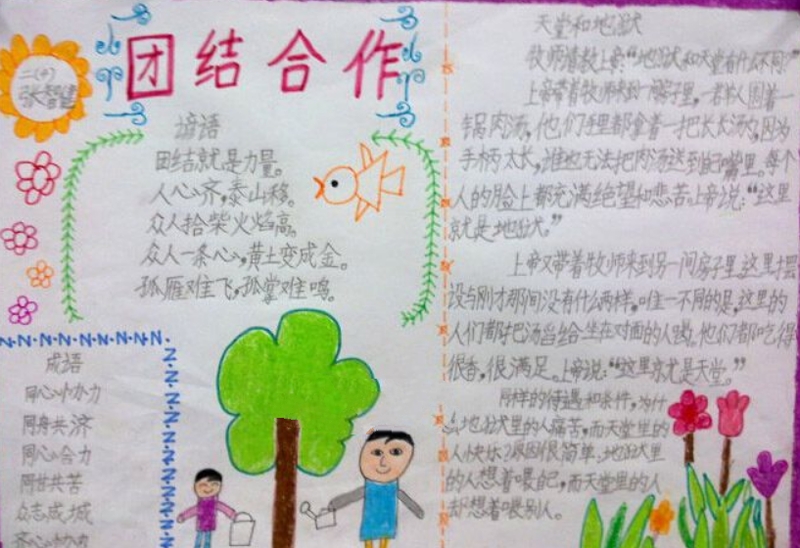 团结合作
二(十)
张智健
谚语
团结就是力量。
人心齐,泰山移。
众人拾柴火焰高。
众人一条心,黄土变成金。
孤雁难飞,孤掌难鸣。
成语
同心协力
同舟共济
同心合力
同甘共苦
众志成城
齐心协力
天堂和地狱
牧师请教上帝:“地狱和天堂有什么不同?”
上帝带着牧师来到一间房子里,一群人围着一
锅肉汤,他们手里都拿着一把长长汤勺,因为
手柄太长,谁也无法把肉汤送到自己嘴里。每个
人的脸上都充满绝望和悲苦。上帝说:“这里
就是地狱。”
上帝又带着牧师来到另一间房子里,这里摆
设与刚才那间没有什么两样,唯一不同的是,这里的
人们都把汤舀给坐在对面的人喝。他们都吃得
很香,很满足。上帝说:“这里就是天堂。”
同样的待遇和条件,为什
么地狱里的人痛苦,而天堂里的
人快乐?原因很简单:地狱里
的人想着喂自己,而天堂里的人
却想着喂别人。